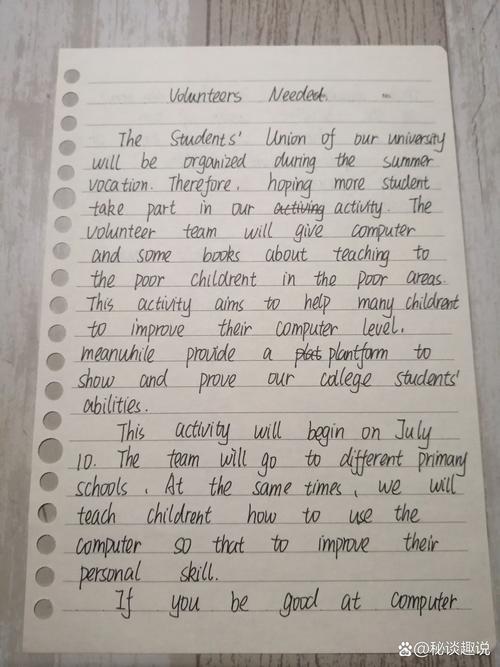 Volunteers Needed.
No.
The Students' Union of our university
will be organized during the summer
vocation. Therefore, hoping more student
take part in our activing activity. The
volunteer team will give computer
and some books about teaching to
the poor childrent in the poor areas.
This activity aims to help many childrent
to improve their computer level,
meanwhile provide a plat plantform to
show and prove our college students'
abilities.
This activity will begin on July
10. The team will go to different primary
schools. At the same times, we will
teach childrent how to use the
computer so that to improve their
personal skill.
If you be good at computer
@秘谈趣说